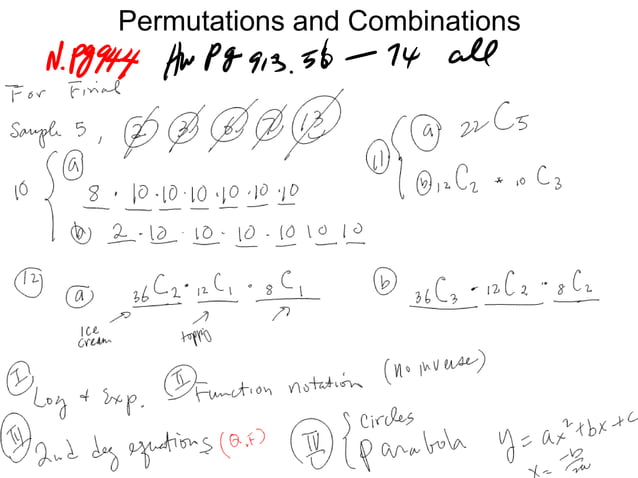 Permutations and Combinations
N.Pg944 Hw Pg 913. 56 — 74 all
For Final
Sample 5, 2 3 6 7 13
10 { a 8 · 10 · 10 · 10 · 10 · 10 · 10
b 2 · 10 · 10 · 10 · 10 10 10
11 { a 22C5
b 12C2 * 10C3
12 a 36C2 · 12C1 · 8C1
ice cream topping
b 36C3 · 12C2 · 8C2
I Log + Exp. II Function notation (no inverse)
III 2nd deg equations (Q.F)
IV { circles
parabola y = ax²+bx+c
x = -b/2a